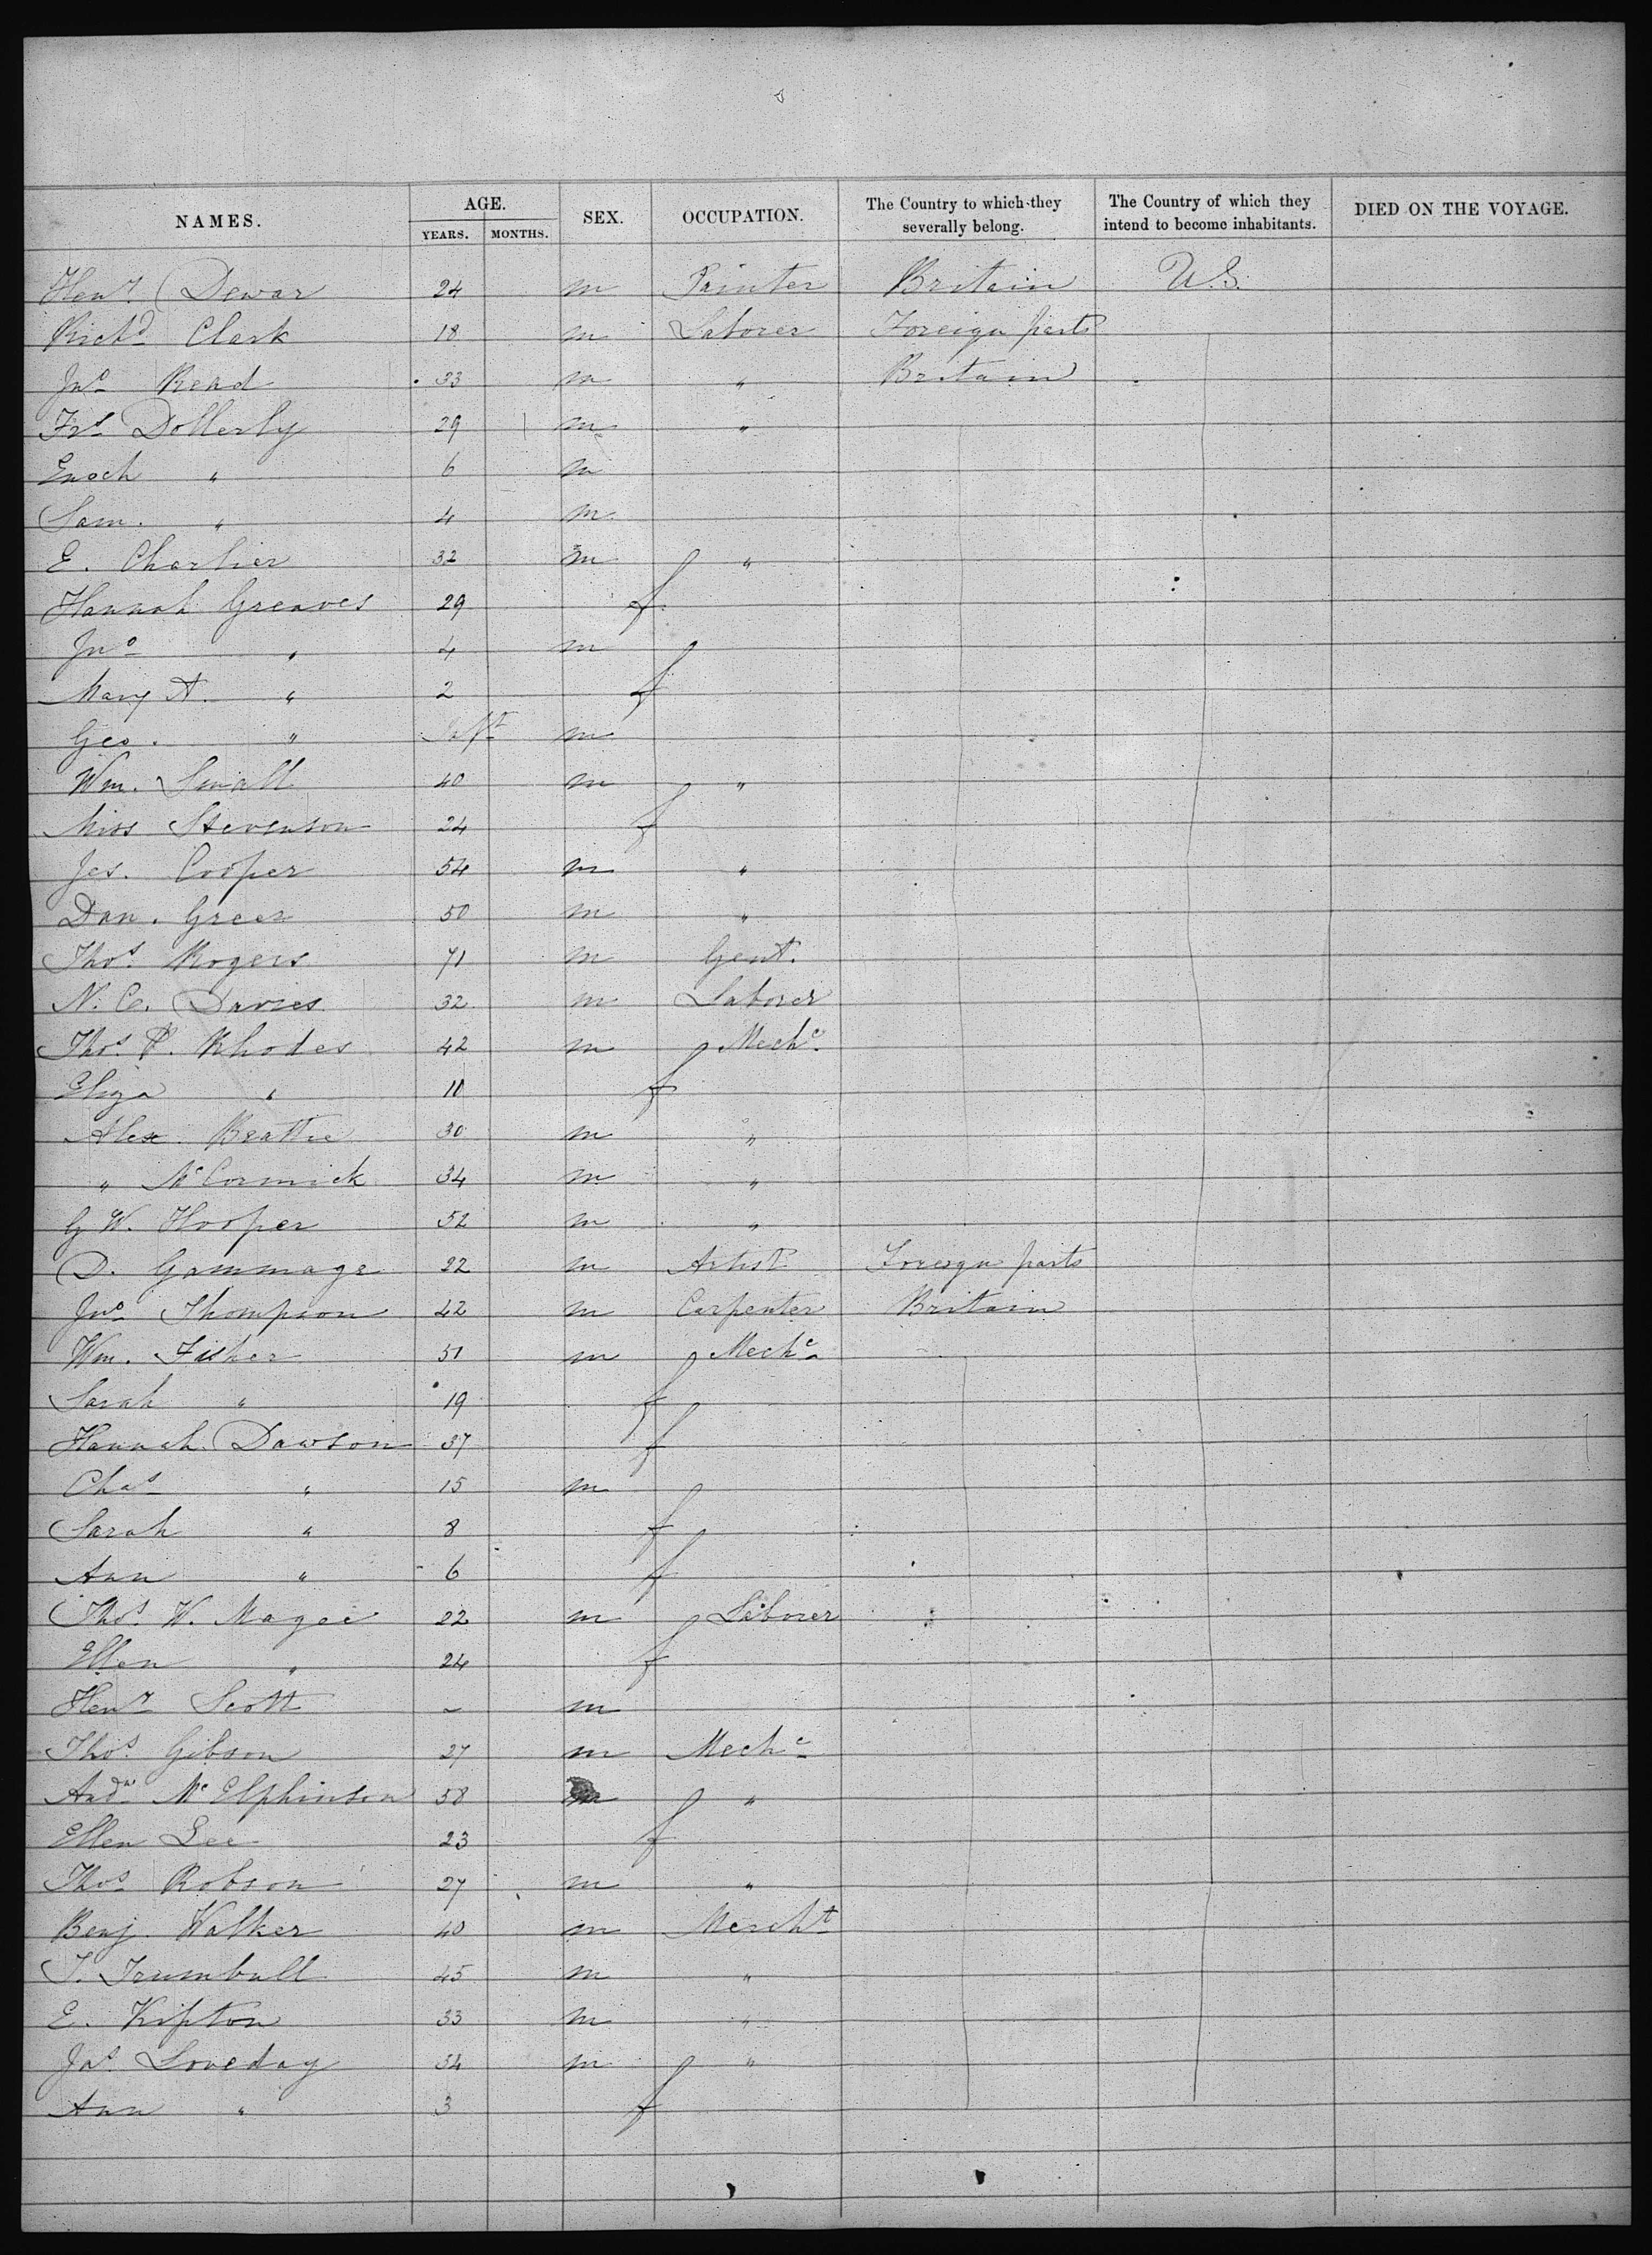 NAMES. AGE. YEARS. MONTHS. SEX. OCCUPATION. The Country to which they severally belong. The Country of which they intend to become inhabitants. DIED ON THE VOYAGE.
Heny Dewar 24 m Painter Britain U.S.
Richd Clark 18 m Laborer Foreign parts
Jno Read 33 m " Britain
Frs Dollerly 29 m "
Enoch " 6 m
Sam. " 4 m
E. Charlier 32 m "
Hannah Greaves 29 f
Jno " 4 m
Mary A. " 2 f
Geo. " Inft m
Wm. Small 40 m "
Miss Stevenson 24 f
Jas. Cooper 54 m "
Dan. Greer 50 m "
Thos Rogers 71 m Gent.
N. C. Davies 32 m Laborer
Thos P. Rhodes 42 m Mechc
Eliza " 11 f
Alex. Beattie 30 m "
" McCormick 34 m "
G W. Hooper 52 m "
D. Gammage 22 m Artist Foreign parts
Jno Thompson 42 m Carpenter Britain
Wm. Fisher 51 m Mechc
Sarah " 19 f
Hannah Dawson 37 f
Chas " 15 m
Sarah " 8 f
Ann " 6 f
Thos W. Magee 22 m Laborer
Ellen " 24 f
Heny Scott – m
Thos Gibson 27 m Mechc
Andw McElphinson 58 m "
Ellen Lee 23 f
Thos Robson 27 m "
Benj. Walker 40 m Mercht
T. Trumbull 45 m "
E. Kipton 33 m "
Jas Loveday 34 m "
Ann " 3 f